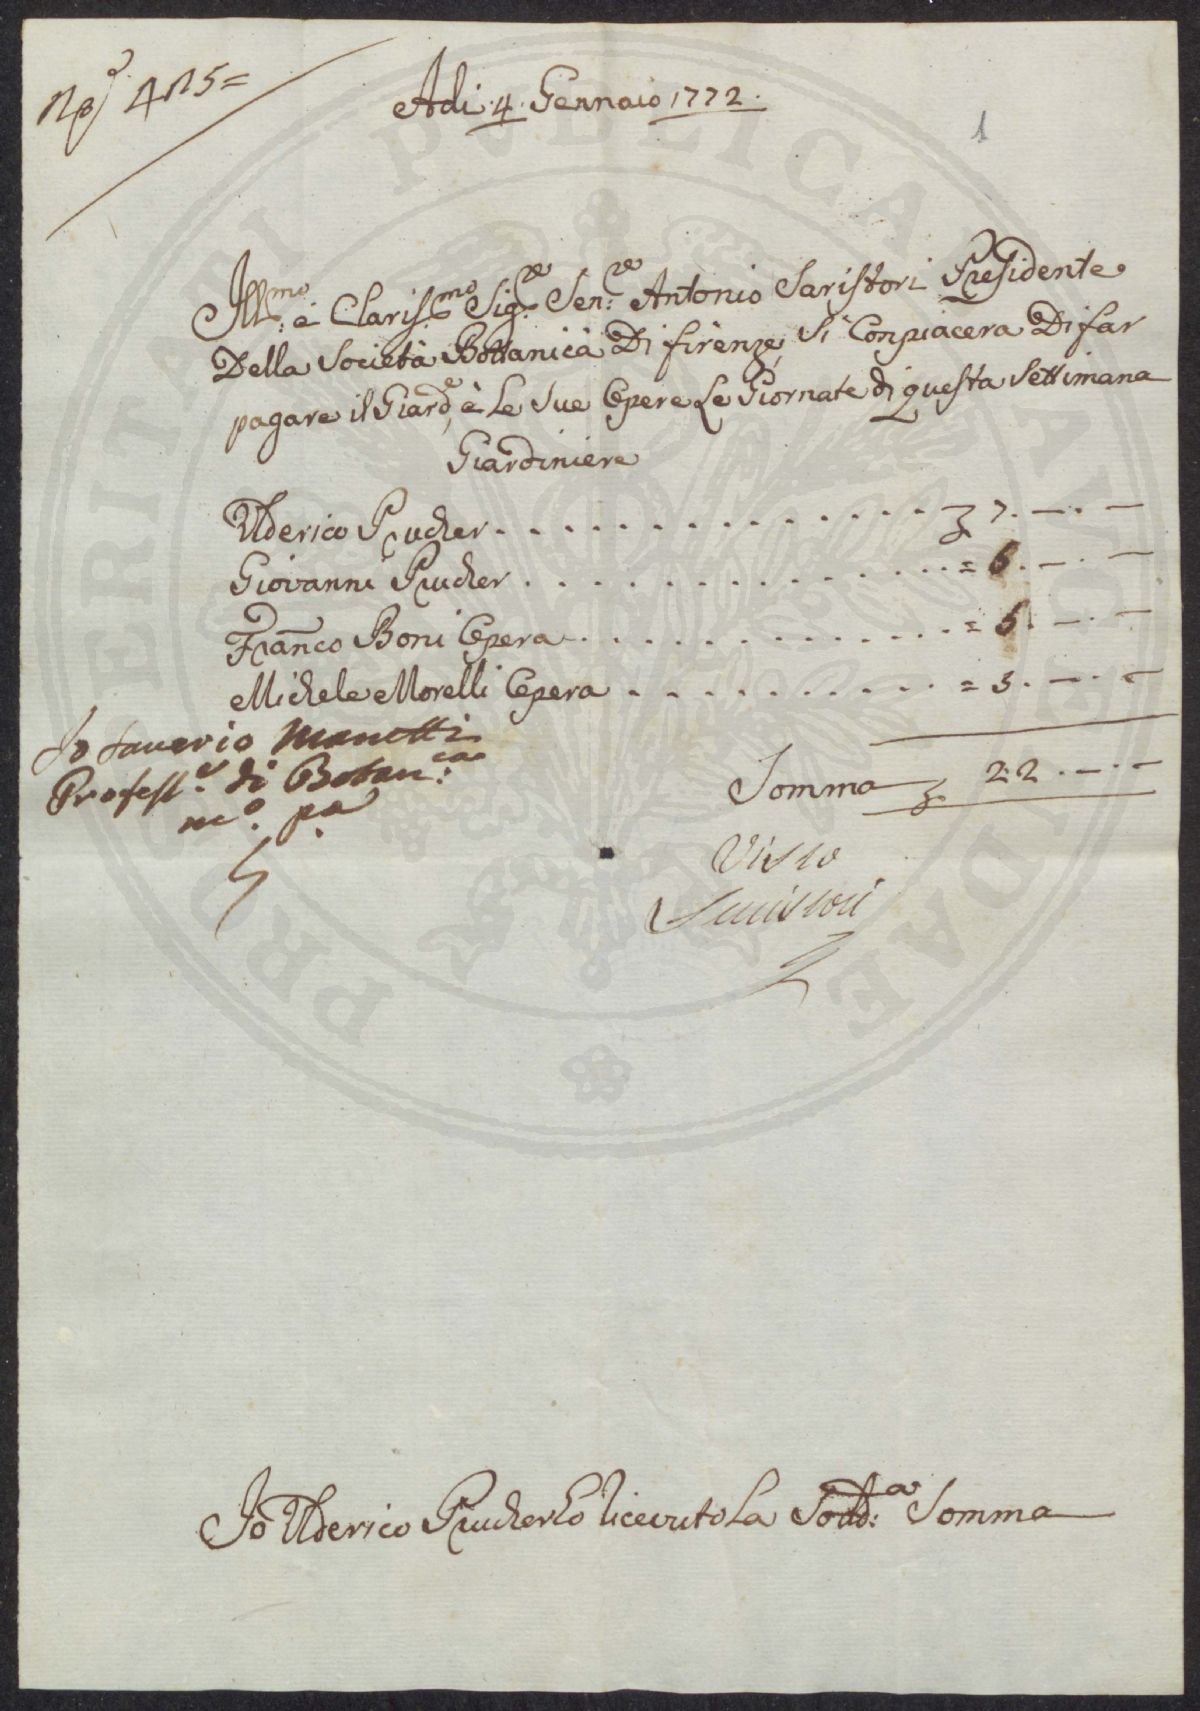 Adi 4. Gennaio 1772.
1
Ill.mo è Claris.mo Sig.re Sen.re Antonio Saristori Presidente
Della Società Bottanica Di firenze, Si Conpiacera Di far
pagare il Giard.e, è Le Sue Opere Le Giornate di questa Settimana
Giardiniere
Ulderico Prucher . . . . . . . . . . . . . . 7. — . —
Giovanni Prucher . . . . . . . . . . . . . . = 6. — . —
Franco Boni Opera . . . . . . . . . . . . . = 6. — . —
Michele Morelli Opera . . . . . . . . . . = 3. — . —
Io Saverio Manetti
Profess.e di Botan.ca
m.o p.a
Somma 22. — . —
Visto
Serristori
Io Ulderico Prucher ò ricevuto La Sodd.a Somma
PROSPERITATI PVBLICAE AVGENDAE